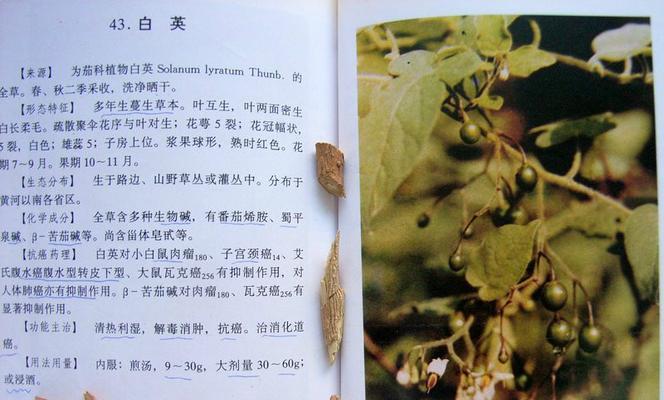 43. 白 英
【来源】 为茄科植物白英 Solanum lyratum Thunb. 的
全草。春、秋二季采收，洗净晒干。
【形态特征】 多年生蔓生草本。叶互生，叶两面密生
白长柔毛。疏散聚伞花序与叶对生；花萼 5 裂；花冠幅状，
5 裂，白色；雄蕊 5；子房上位。浆果球形，熟时红色。花
期 7~9 月。果期 10~11 月。
【生态分布】 生于路边、山野草丛或灌丛中。分布于
黄河以南各省区。
【化学成分】 全草含多种生物碱，有番茄烯胺、蜀平
泉碱、β-苦茄碱等。尚含甾体皂甙等。
【抗癌药理】 白英对小白鼠肉瘤180、子宫颈癌14、艾
氏腹水癌腹水型转皮下型、大鼠瓦克癌256有抑制作用，对
人体肺癌亦有抑制作用。β-苦茄碱对肉瘤180、瓦克癌256有
显著抑制作用。
【功能主治】 清热利湿，解毒消肿，抗癌。治消化道
癌。
【用法用量】 内服：煎汤，9~30g，大剂量 30~60g；
或浸酒。